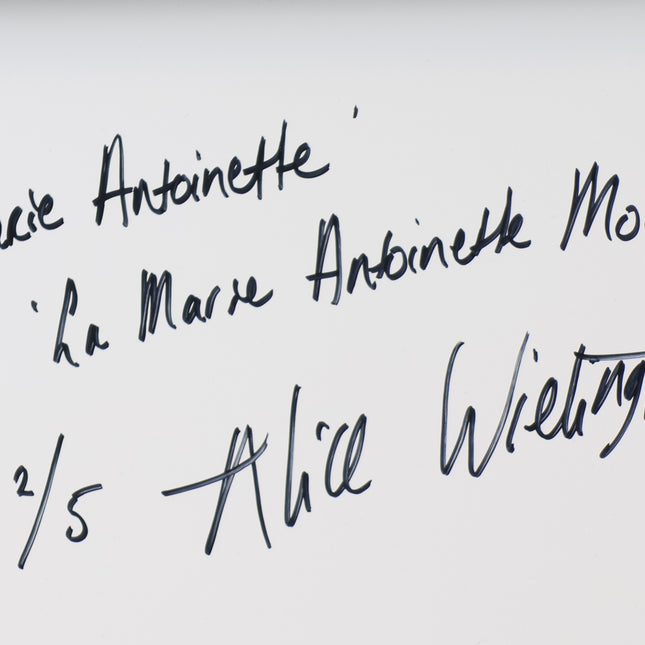 rie Antoinette'
'La Marie Antoinette Mo
2/5 Alice Wieling